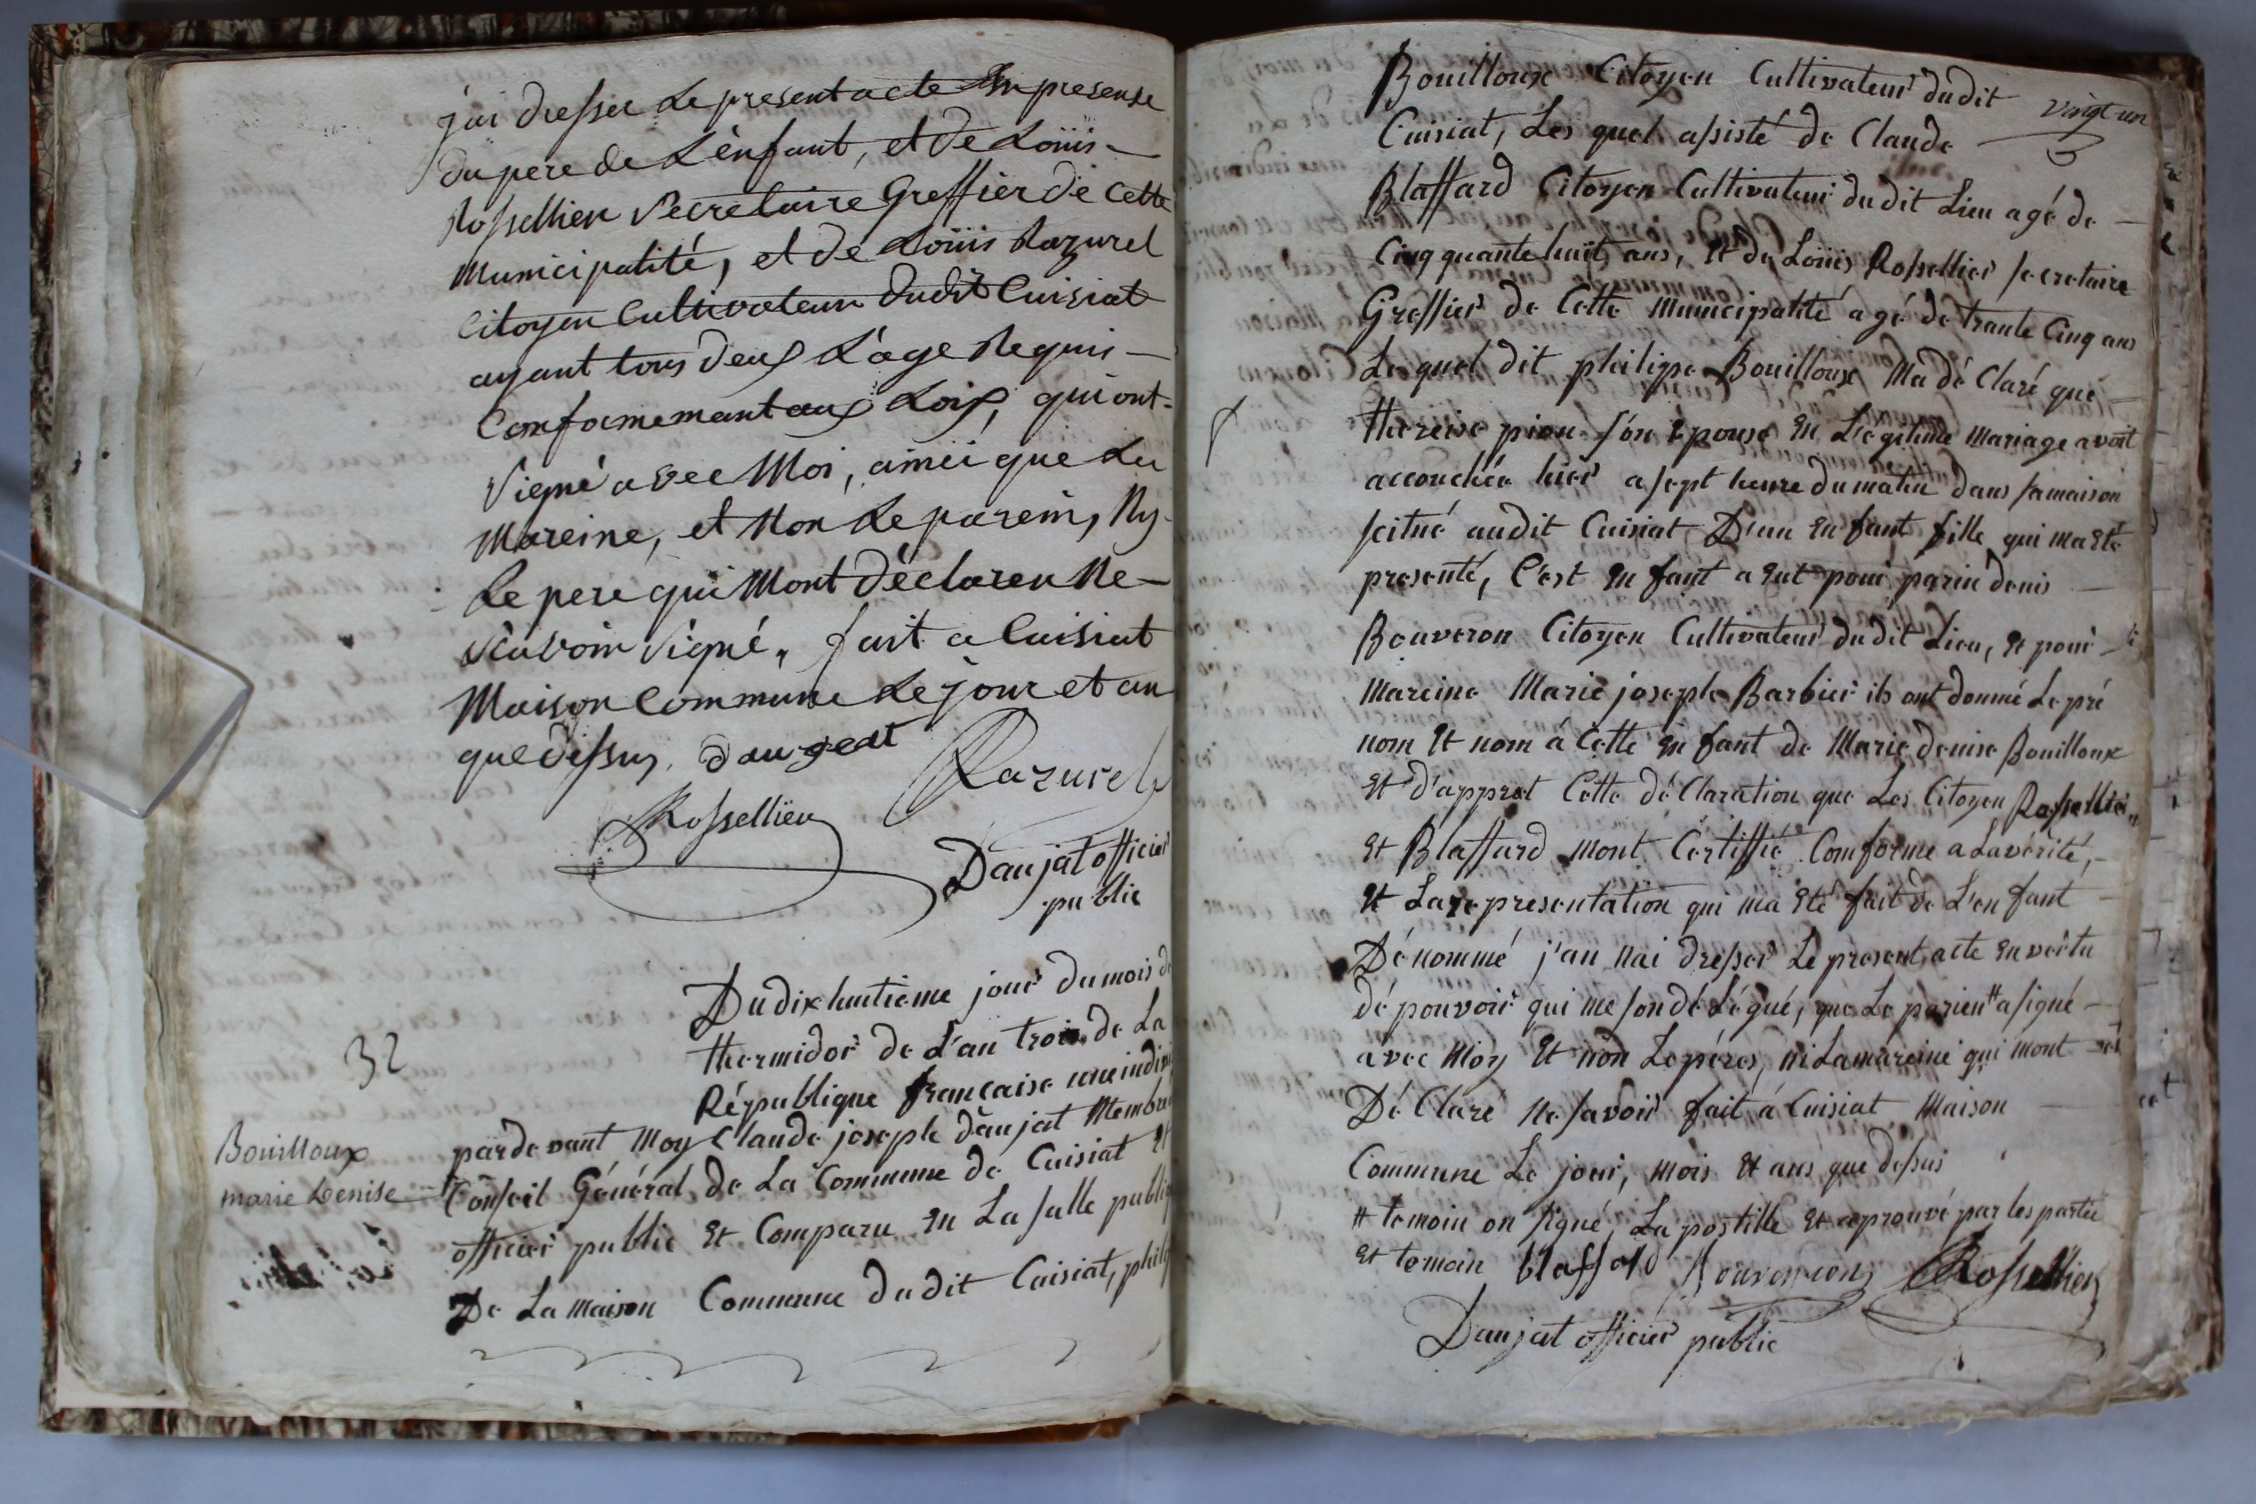 j'ai dresser Le present acte En presense
du pere de L'enfant, et de Loüis
Rossellien Secretaire Greffier de cette
Municipalité, et de Loüis Razurel
Citoyen Cultivateur dudit Cuisiat
ayant tous deux L'age Requis
Comformemant aux Loix, qui ont
Signé avec Moi, ainsi que La
Mareine, et Non Le parein, Ny
Le pere qui Mont déclaren Ne
scavoir signé, fait a Cuisiat
Maison Commune Le jour et an
que dessus, daugeat
Razurel
Rossellien
Daujat officier
public
32
Bouilloux
marie denise
Du dix huitieme jour du mois de
thermidor de L'an trois de La
République francaise une indivi
par devant Moy Claude joseph daujat Membre
Conseil Général de La Commune de Cuisiat et
officier public Et Comparu En La salle publiq
De La maison Commune du dit Cuisiat, philip
vingt un
Bouilloux Citoyen Cultivateur du dit
Cuisiat, Les quel assisté de Claude
Blaffard Citoyen Cultivateur du dit Lieu agé de
Cinqquante huit ans, Et de Loüis Rossellier secretaire
Greffier de Cette Municipalité agé de trante Cinq ans
Le quel dit philippe Bouilloux Ma dé Claré que
thereise pion son Epouse En L'egitime Mariage avoit
accouchée hier a sept heure du matin dans sa maison
scitué audit Cuisiat D'un En fant fille qui ma Eté
presenté, C'est En fant a Eut pour parin denis
Bouveron Citoyen Cultivateur du dit Lieu, Et pour
Mareine Marie joseph Barbier ils ont donné Le pré
nom Et nom á Cette En fant de Marie denise Bouilloux
Et d'appret Cette dé Claration que Les Citoyen Rossellier
Et Blaffard mont Certiffié Comforme a La verité,
Et La representation qui ma Eté fait de L'en fant
Dénommé j'an nai dresser Le present acte En vertu
de pouvoir qui me son dé Légué, que Le parien # a signé
avec Moy Et non Le péres, ni La mareine qui mont
Dé Claré Ne savoir fait á Cuisiat Maison
Commune Le jour, mois Et ans que dessus
# temoin on signé, La postille Et aprouvé par les partie
Et temoin blaffard Bouveron Rossellien
Daujat officier public